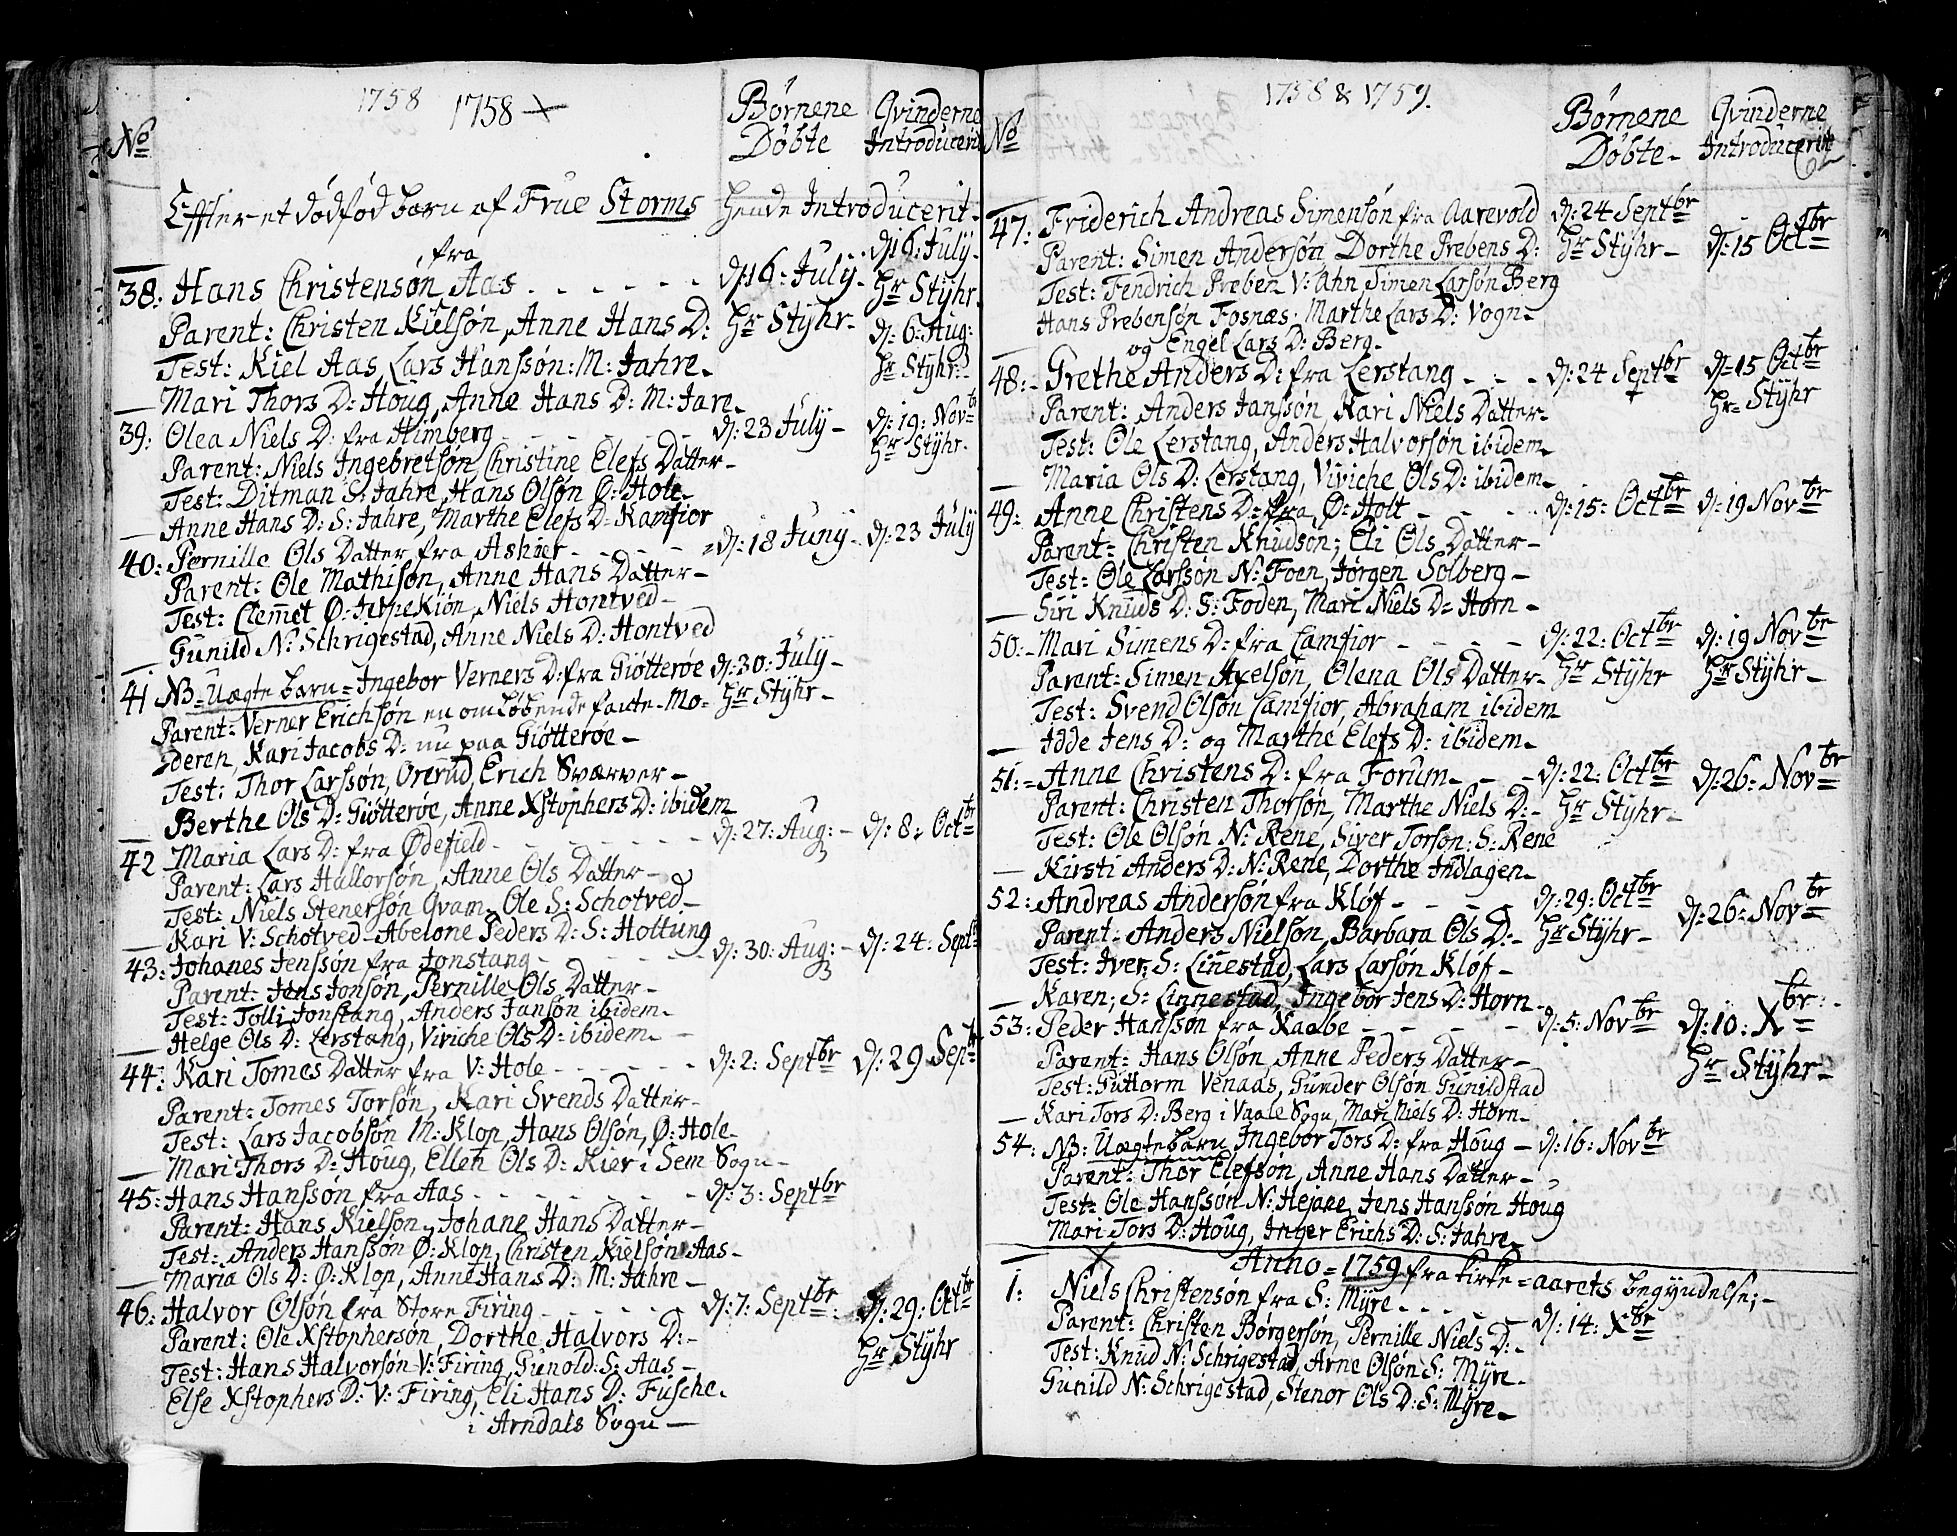 1758 1758
No Børnene Døbte Qvinderne Introducerit
Effter et dødfød barn af Frue Storms hende Introducerit -
d: 16: July -
Hr Styhr -
38: Hans Christensøn fra Aas - - - - - d: 16: July -
Parent: Christen Kielsøn, Anne Hans D: Hr Styhr - d: 6: Aug:
Test: Kiel Aas, Lars Hanssøn: M: Jahre - Hr Styhr -
Mari Thors D: Houg, Anne Hans D: M: Jare -
39: Olea Niels D: fra Himberg - - - - d: 23 July - d: 19: Novbr
Parent: Niels Ingebretsøn, Christine Elefs Datter - Hr Styhr -
Test: Ditman S: Jahre, Hans Olsøn Ø: Hole -
Anne Hans D: S: Jahre, Marthe Elefs D: Kamfior
40: Pernille Ols Datter fra Askier - - - - d: 18 Junij - d: 23 July
Parent: Ole Mathisøn, Anne Hans Datter -
Test: Clemet Ø: Jerpekiøn, Niels Hontved -
Gunild N: Schrigestad, Anne Niels D: Hontved
41 NB = Uægte barn = Ingebor Verners D: fra Giøtterøe d: 30: July -
Parent: Verner Erichsøn en omløbende fante - Mo= Hr Styhr -
deren, Kari Jacobs D: nu paa Giøtterøe -
Test: Thor Larssøn, Orerud, Erich Sværver -
Berthe Ols D: Giøtterøe, Anne Xstophers D: ibidem
42 Maria Lars D: fra Ødefield - - - - d: 27: Aug: - d: 8: Octbr
Parent: Lars Hallorsøn, Anne Ols Datter -
Test: Niels Stenersøn Qvam - Ole S: Schotved -
Kari V: Schotved - Abelone Peders D: S: Holtung
43: Johanes Jenssøn fra Jonstang - - - - d: 30: Aug: - d: 24: Septbr
Parent: Jens Jonsøn, Pernille Ols Datter -
Test: Tolli Jonstang, Anders Jansøn ibidem -
Helge Ols D: Lerstang, Viriche Ols D: ibidem -
44: Kari Tomes Datter fra V: Hole - - - - d: 2: Septbr d: 29 Septbr
Parent: Tomes Torsøn, Kari Svends Datter -
Test: Lars Jacobsøn M: Klop, Hans Olsøn, Ø: Hole -
Mari Thors D: Houg, Ellen Ols D: Kier i Sem Sogn -
45: Hans Hanssøn fra Aas - - - - d: 3: Septbr
Parent: Hans Kielsøn, Johane Hans Datter -
Test: Anders Hanssøn Ø: Klop, Christen Kielsøn Aas -
Maria Ols D: Ø: Klop, Anne Hans D: M: Jahre -
46: Halvor Olsøn fra Store Firing - - - - d: 7: Septbr d: 29: Octbr
Parent: Ole Xstophersøn, Dorthe Halvors D: - Hr Styhr
Test: Hans Halvorsøn V: Firing, Gunold: S: Aas -
Else Xstophers D: V: Firing, Eli Hans D: Fusche -
i Arndals Sogn -
1758 & 1759.
No Børnene Døbte - Qvinderne Introducerit
47: Friderich Andreas Simensøn fra Aarevold d: 24 Septbr
Parent: Simen Andersøn, Dorthe Prebens D: Hr Styhr - d: 15 Octbr
Test: Fendrich Preben V: Ahn, Simen Larsøn Berg
Hans Prebensøn Fosnæs, Marthe Lars D: Vogn -
og Engel Lars D: Berg -
48: - Grethe Anders D: fra Lerstang - - - d: 24 Septbr d: 15 Octbr
Parent: Anders Janssøn, Kari Niels Datter - Hr Styhr
Test: Ole Lerstang, Anders Halvorsøn ibidem -
Maria Ols D: Lerstang, Viviche Ols D: ibidem -
49: Anne Christens D: fra Ø: Holt - - - d: 15: Octbr d: 19 Novbr
Parent: Christen Knudsøn, Eli Ols Datter -
Test: Ole Larssøn N: Foen, Jørgen Solberg -
Siri Knuds D: S: Foden, Mari Niels D: Horn -
50: - Mari Simens D: fra Camfior - - - d: 22: Octbr d: 19 Novbr
Parent: Simen Axelsøn, Olena Ols Datter - Hr Styhr Hr Styhr -
Test: Svend Olsøn Camfior, Abraham ibidem
Idde Jens D: og Marthe Elefs D: ibidem -
51: = Anne Christens D: fra Forum - - - d: 22: Octbr d: 26: Novbr
Parent: Christen Thorsøn, Marthe Niels D: - Hr Styhr -
Test: Ole Olsøn N: Rene, Siver Torson: S: Rene
Kirsti Anders D: N: Rene, Dorthe Indlagen -
52: Andreas Andersøn fra Kløf - - - d: 29: Octbr
Parent - Anders Nielsøn, Barbara Ols D: - Hr Styhr - d: 26: Novbr
Test: Iver S: Linestad, Lars Larsøn Kløf -
Karen; S: Linnestad, Ingebor Jens D: Horn
53: Peder Hanssøn fra Kaabe - - - d: 5: Novbr d: 10: Xbr
Parent: Hans Olsøn, Anne Peders Datter - Hr Styhr -
Test: Guttorm Venaas, Gunder Olsøn Gunildstad
Kari Tors D: Berg i Vaale Sogn, Mari Niels D: Horn -
54: NB: Uægte barn Ingebor Tors D: fra Houg - d: 16: Novbr
Parent: Thor Elefsøn, Anne Hans Datter -
Test: Ole Hanssøn N: Hejare, Jens Hanssøn Houg
Mari Tors D: Houg, Inger Erichs D: S: Jahre -
Anno = 1759 fra kirke = aarets begyndelse; -
1: Niels Christensøn fra S: Myre - - - - d: 14: Xbr
Parent: Christen Børgersøn, Pernille Niels D: -
Test: Knud N: Schrigestad, Arne Olsøn S: Myre -
Gunild N: Schrigestad, Stenor Ols D: S: Myre -